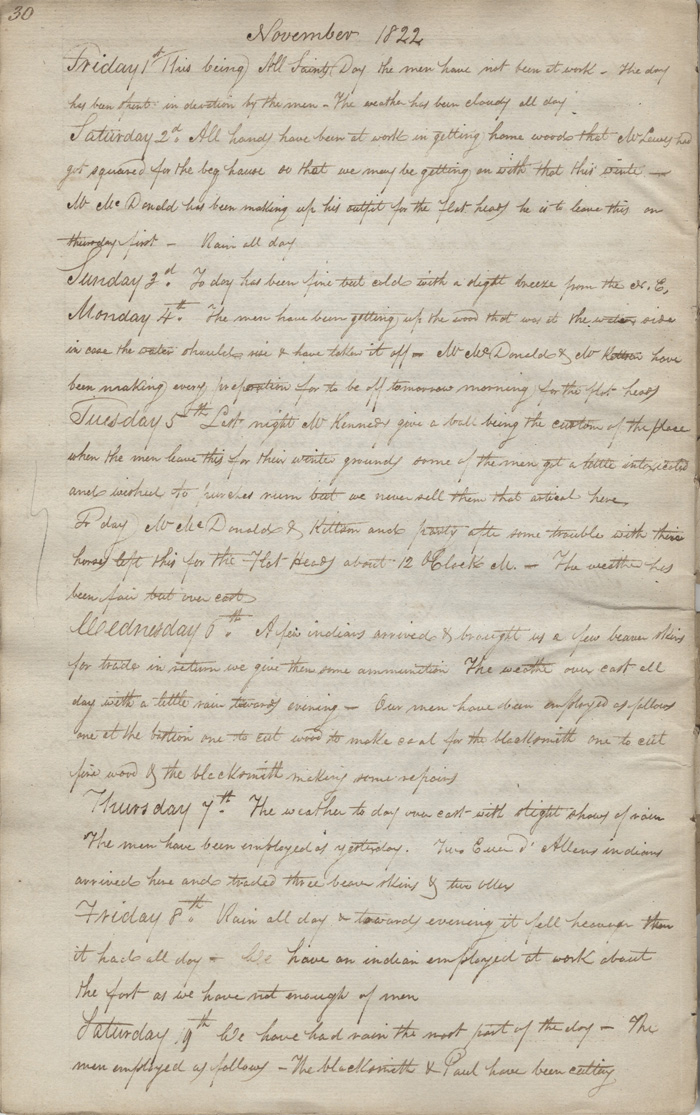 30
November 1822
Friday 1st This being All Saints Day the men have not been at work – The day
has been spent in devotion by the men – The weather has been cloudy all day
Saturday 2d. All hands have been at work in getting home woods that Mr Lewes had
got squared for the beg house so that we may be getting on with that this winte –
Mr Mc Donald has been making up his outfit for the flat heads he is to leave this on
thursday first – Rain all day
Sunday 3d. To day has been fine but cold with a slight breeze from the N. E.
Monday 4th. The men have been getting up the wood that was at the water side
in case the water should rise & have taken it off – Mr Mc Donald & Mr Kittson have
been making every preparation for to be off tomorrow morning for the flat heads
Tuesday 5th Last night Mr Kennedy give a ball being the custom of the place
when the men leave this for their winter grounds some of the men got a little intoxicated
and wished to purches rum but we never sell them that artical here
To day Mr Mc Donald & Kittson and party afte some trouble with their
horses left this for the Flat Heads about 12 OClock M. – The weather has
been fair but over cast
Wednesday 6th. A few indians arrived & brought us a few beaver skins
for trade in return we give them some ammunition The weathe over cast all
day with a little rain towards evening – Our men have been employed as follows
one at the bastion one to cut wood to make coal for the blacksmith one to cut
fire wood & the blacksmith making some repairs
Thursday 7th. The weather to day over cast with slight shows of rain
The men have been employed as yesterday. Two Cuer d' Allens indians
arrived here and traded three beaver skins & two otters
Friday 8th. Rain all day & towards evening it fell heavver than
it had all day – We have an indian employed at work about
the fort as we have not enough of men
Saturday 9th We have had rain the most part of the day – The
men employed as follows – The blacksmith & Paul have been cutting